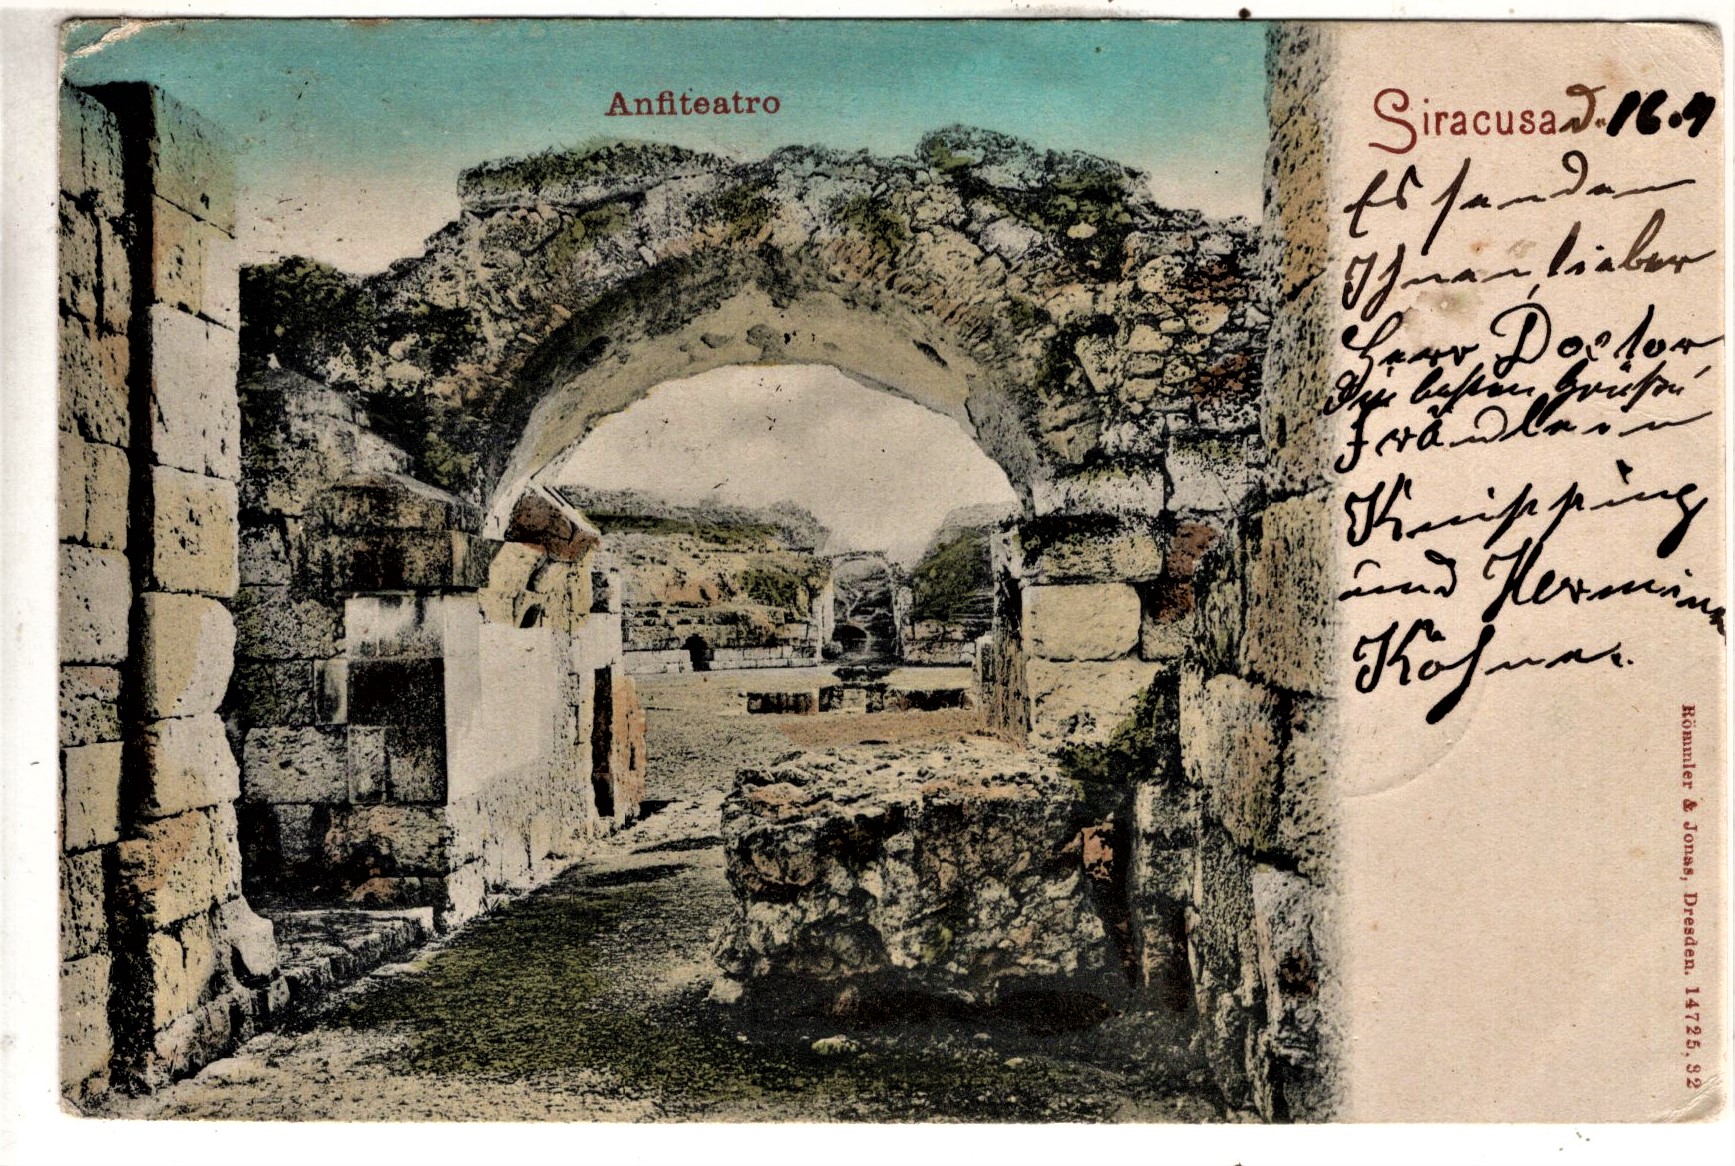 Anfiteatro
Siracusa d. 16.4
Es senden
Ihnen, lieber
Herr Doctor,
die besten Grüße
Fräulein
Knipping
und Hermine
Köhne.
Römmler & Jonas, Dresden. 14725, 32